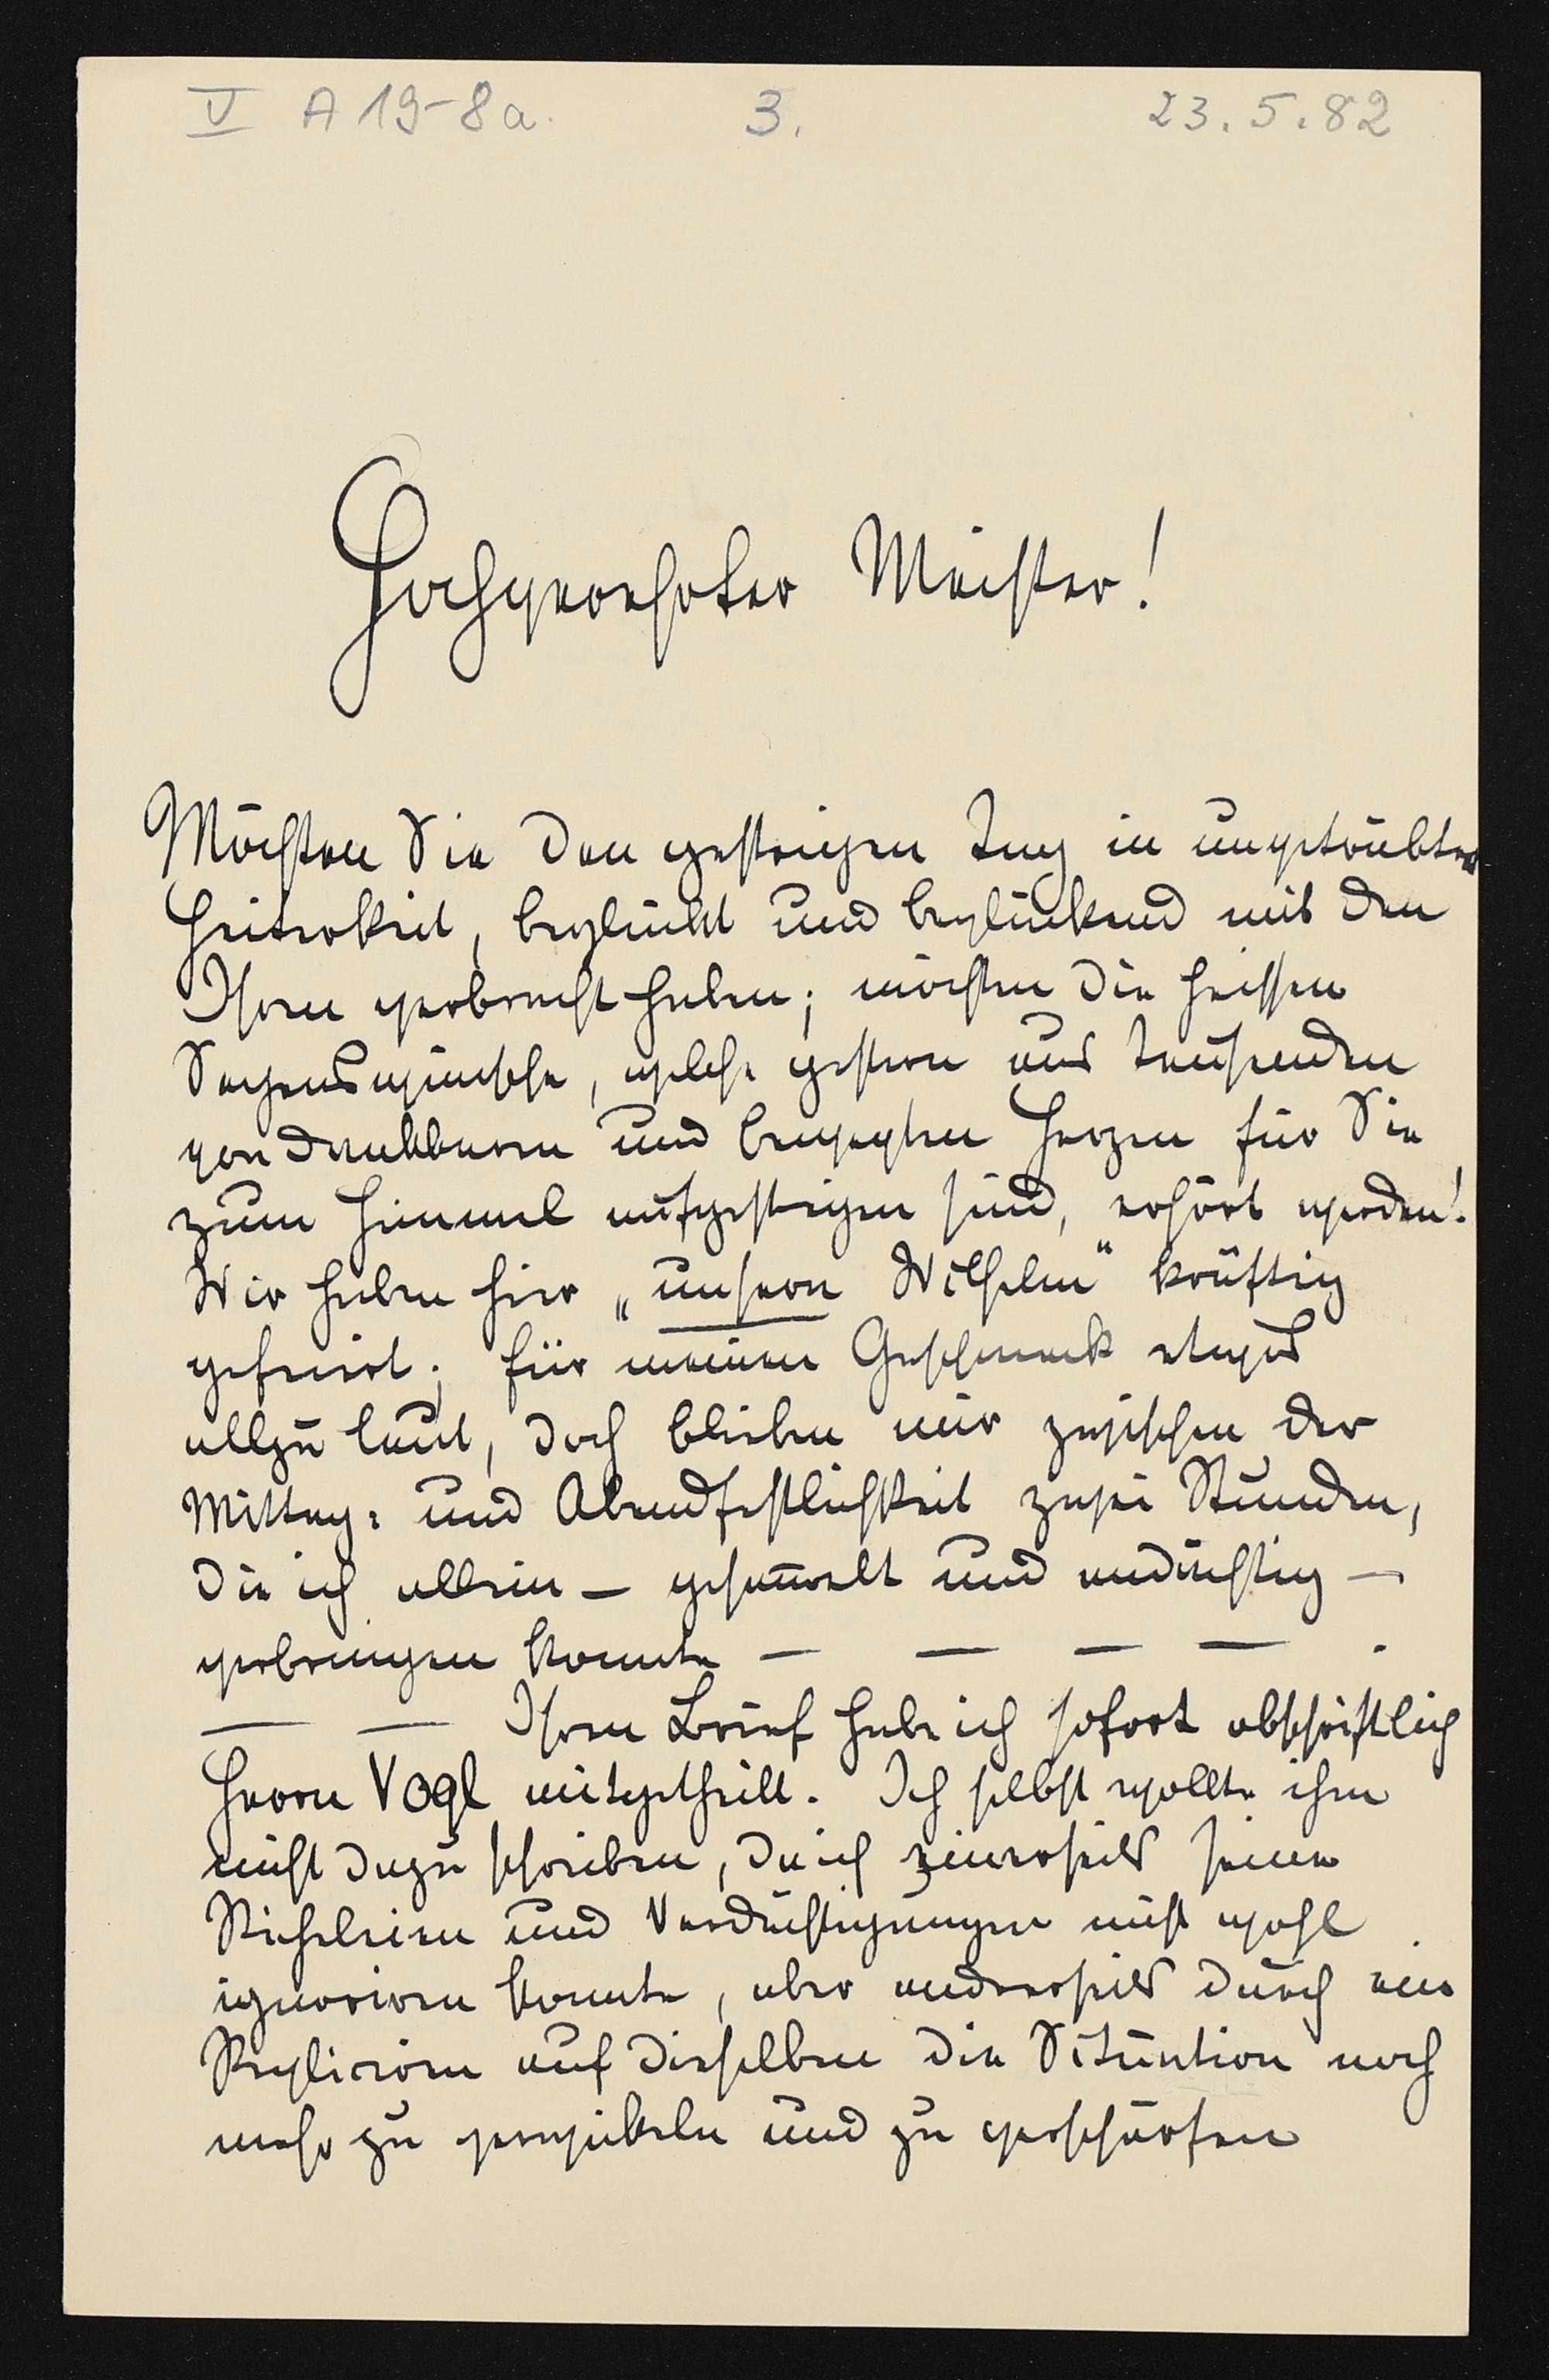 V A 19-8a. 3. 23.5.82
Hochverehrter Meister!
Möchten Sie den gestrigen Tag in ungetrübter
Heiterkeit, beglückt und beglückend mit den
Ihren verbracht haben; möchten die heissen
Segenswünsche, welche gestern aus tausenden
von dankbaren und bewegten Herzen für Sie
zum Himmel aufgestiegen sind, erhört werden!
Wir haben hier „unsern Wilhelm“ kräftig
gefeiert; für meinen Geschmack etwas
allzu laut, doch blieben mir zwischen der
Mittag- und Abendfestlichkeit zwei Stunden,
die ich allein – gesam̅elt und andächtig –
verbringen konnte — — — — .
— — Ihren Brief habe ich sofort abschriftlich
Herrn Vogl mitgetheilt. Ich selbst wollte ihm
nicht dazu schreiben, da ich einerseits seine
Sticheleien und Verdächtigungen nicht wohl
ignoriren konnte, aber anderseits durch ein
Repliciren auf dieselben die Situation noch
mehr zu verwickeln und zu verschärfen